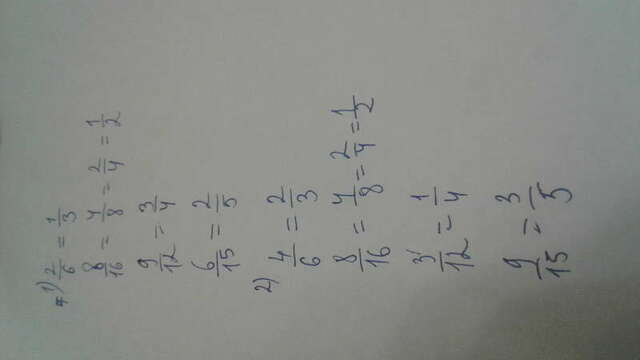 1) 2/6 = 1/3
8/16 = 4/8 = 2/4 = 1/2
9/12 = 3/4
6/15 = 2/5
2) 4/6 = 2/3
8/16 = 4/8 = 2/4 = 1/2
3/12 = 1/4
9/15 = 3/5